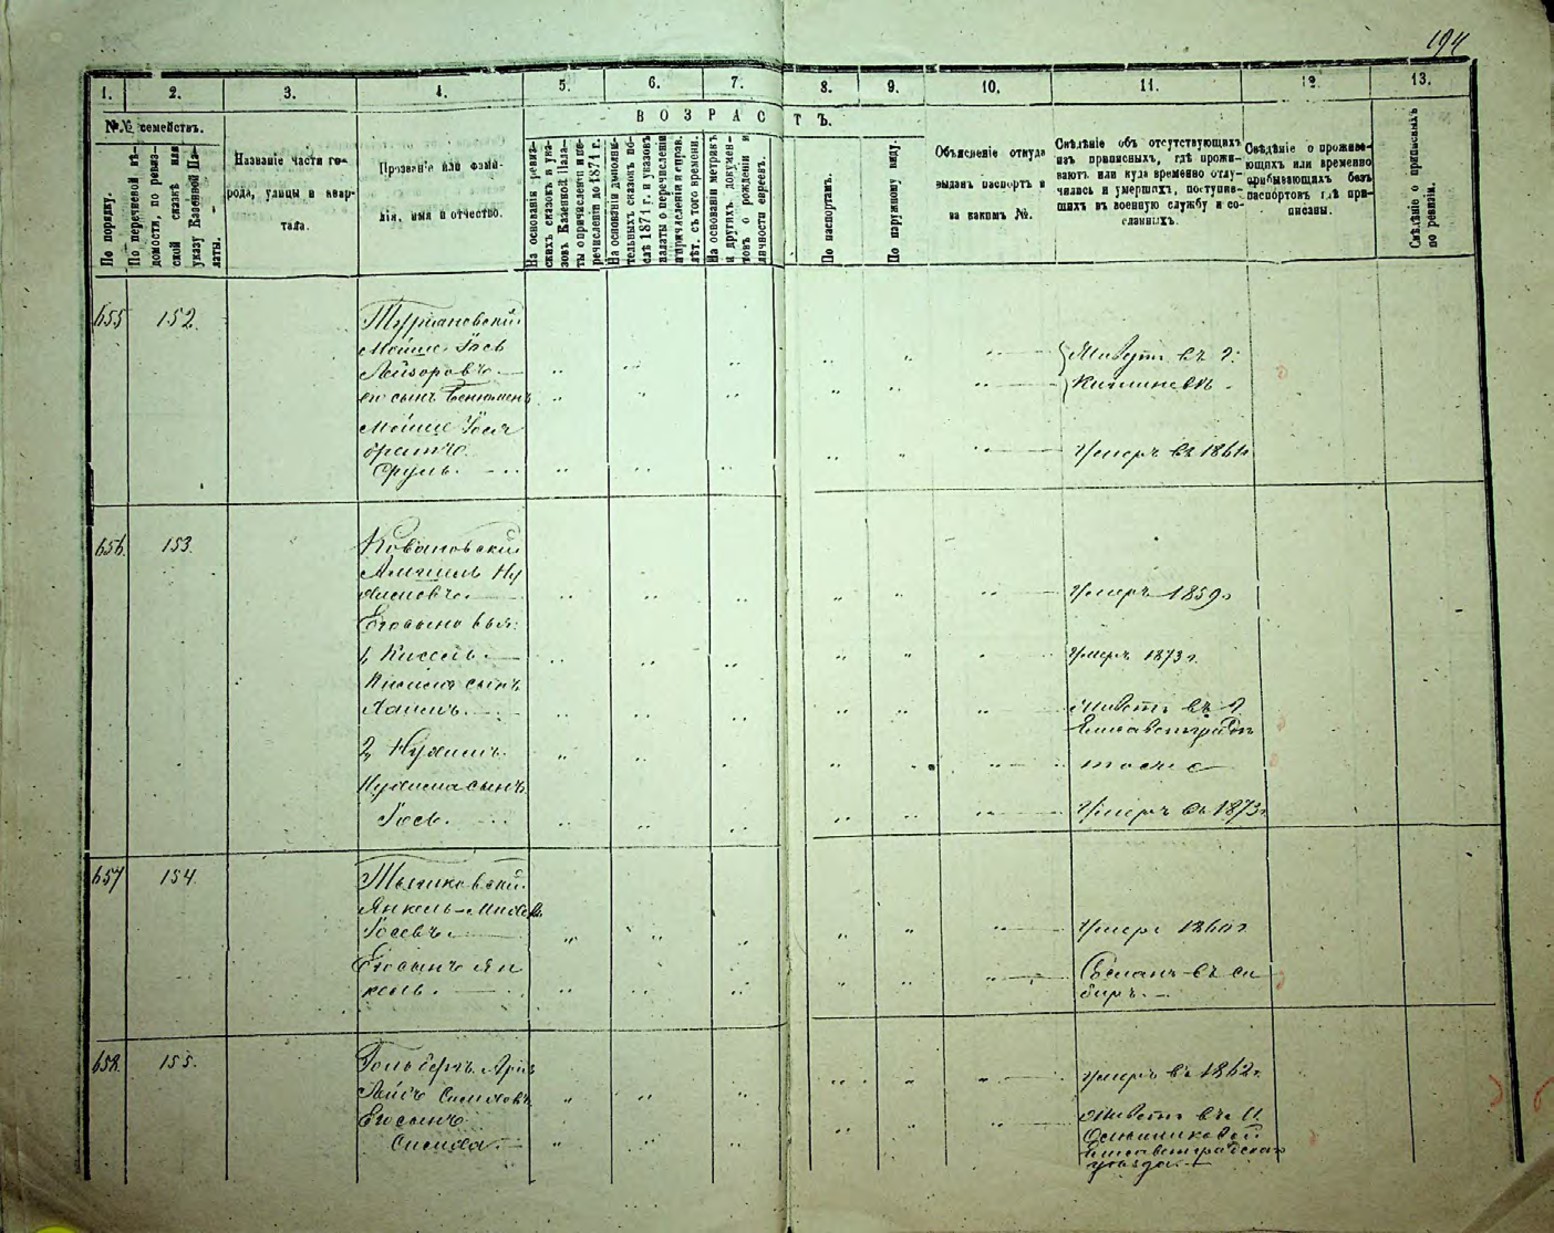 194
1. 2. 3. 4. 5. 6. 7. 8. 9. 10. 11. 12. 13.
№№ семействъ.
В О З Р А С Т Ъ.
По порядку.
По перечневой вѣ-
домости, по ревиз-
ской сказкѣ или
указу Казенной Па-
латы.
Названіе части го-
рода, улицы и квар-
тала.
Прозваніе или фами-
лія, имя и отчество.
На основаніи ревиз-
скихъ сказокъ и ука-
зовъ Казенной Пала-
ты о причисленіи и пе-
речисленіи до 1871 г.
На основаніи дополни-
тельныхъ сказокъ по-
слѣ 1871 г. и указовъ
палаты о перечисленіи
и причисленіи и справ.
лѣт. съ того времени.
На основаніи метрикъ
и другихъ докумен-
товъ о рожденіи и
личности евреевъ.
По паспортамъ.
По наружному виду.
Объясненіе откуда
выданъ паспортъ и
за какимъ №.
Свѣдѣніе объ отсутствующихъ
изъ приписныхъ, гдѣ прожи-
ваютъ или куда временно отлу-
чились и умершихъ, поступив-
шихъ въ военную службу и со-
сланныхъ.
Свѣдѣніе о прожива-
ющихъ или временно
прибывающихъ безъ
паспортовъ гдѣ при-
писаны.
Свѣдѣніе о приписныхъ
по ревизіи.
655 152.
Мойше Іось
Лейзоровъ.
его сынъ
Живутъ въ г.
Кишиневѣ.
Мойше Іося
братъ
Сруль.
Умеръ въ 1861г
656. 153.
Амшель Ну
химовъ.
Умеръ 1859г
Его сыновья:
1, Кисель.
Умеръ 1873г.
Киселя сынъ
Хаимъ.
Живетъ въ г
Елисаветградѣ
2, Нухимъ.
тоже
Нухима сынъ
Іось.
Умеръ въ 1873г
657 154.
Янкель-
Іосевъ.
Умеръ 1860г
Его сынъ Ян
кель.
Сосланъ въ си
бирь.
658. 155.
Гольбергъ
Симховъ
Умеръ въ 1862г.
Его сынъ
Симха.
Живетъ въ
Елисаветградскаго
уѣзда.